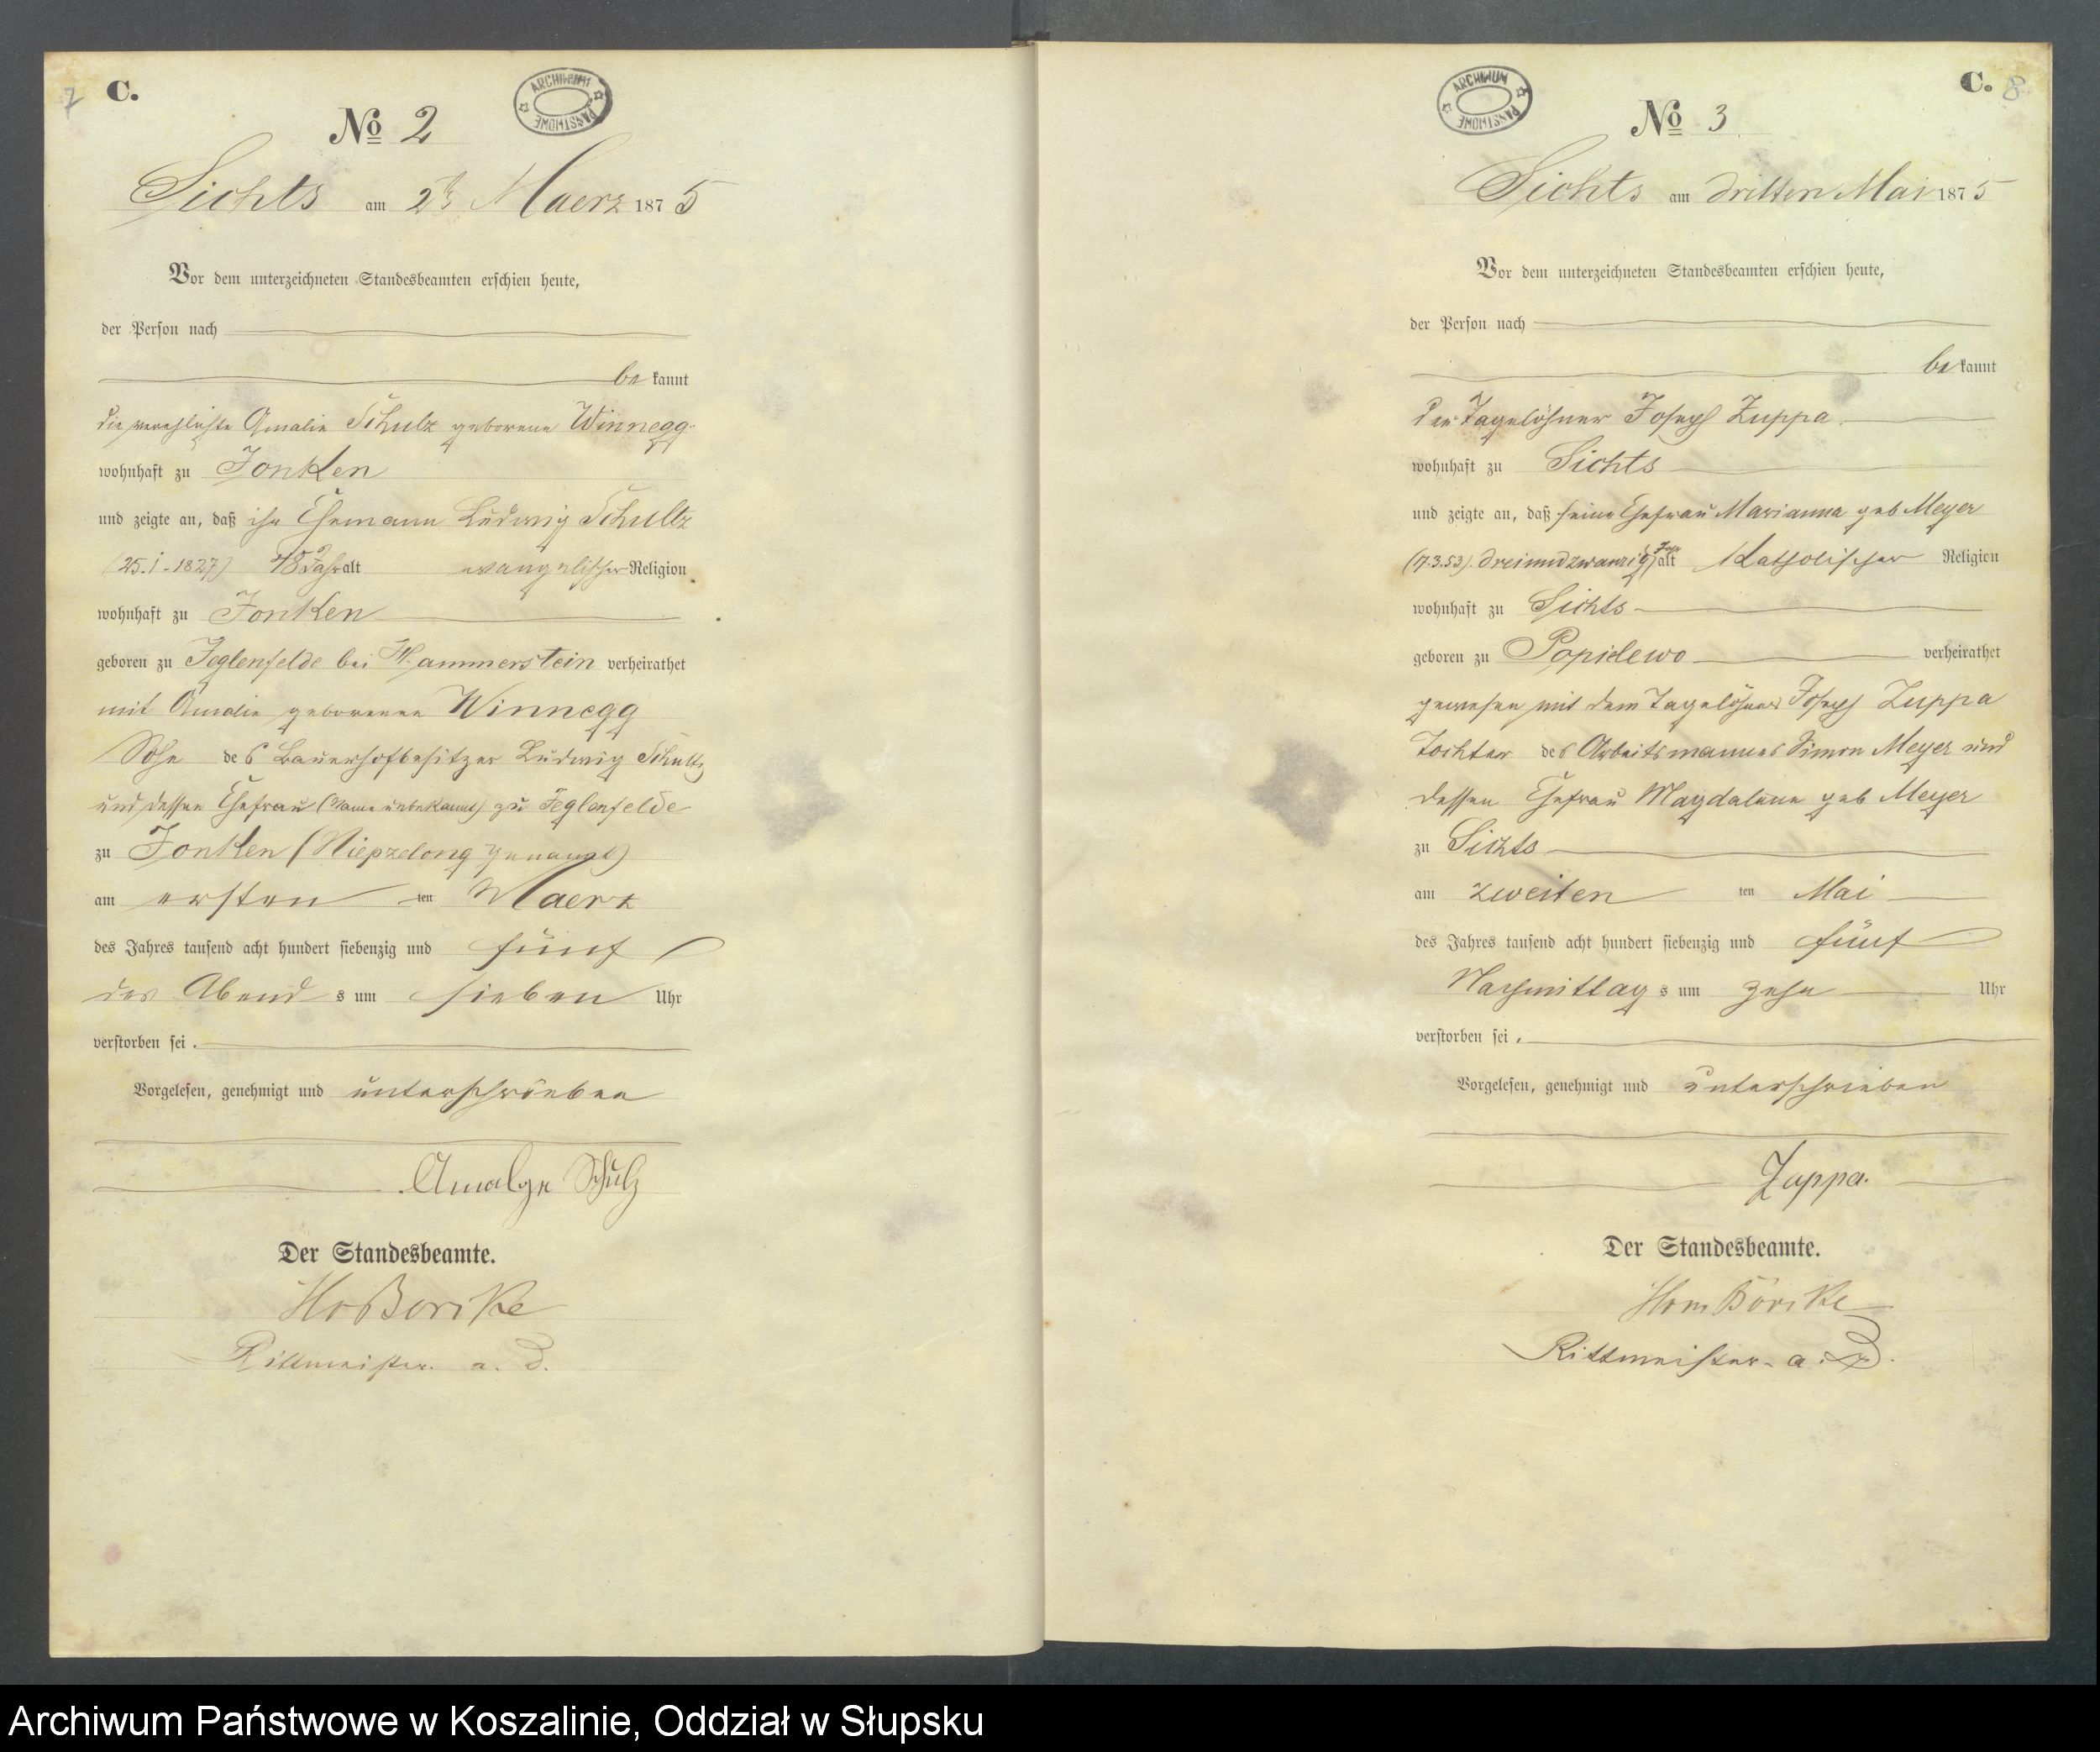 7
C.
ARCHIWUM PAŃSTWOWE
No 2
Sichts am 2t Maerz 1875
Vor dem unterzeichneten Standesbeamten erschien heute,
der Person nach
bekannt
die verehlichte Amalie Schulz geborene Winnegg
wohnhaft zu Jonken
und zeigte an, daß ihr Ehemann Ludwig Schultz
(25.1.1827) 48 Jahr alt evangelischer Religion
wohnhaft zu Jonken
geboren zu Jeglenfelde bei Hammerstein verheirathet
mit Amalie geborenen Winnegg
Sohn des Bauerhofbesitzer Ludwig Schultz
und dessen Ehefrau (Name unbekannt) zu Jeglenfelde
zu Jonken (Niepzelong genannt)
am ersten ten Maerz
des Jahres tausend acht hundert siebenzig und fünf
des Abend s um sieben Uhr
verstorben sei.
Vorgelesen, genehmigt und unterschrieben
Schulz
Der Standesbeamte.
Rittmeister a. D.
C.
8
ARCHIWUM PAŃSTWOWE
No 3
Sichts am dritten Mai 1875
Vor dem unterzeichneten Standesbeamten erschien heute,
der Person nach
bekannt
der Tagelöhner Joseph Zuppa
wohnhaft zu Sichts
und zeigte an, daß seine Ehefrau Marianna geb Meyer
(7.3.53) dreiundzwanzig Jahr alt Katholischer Religion
wohnhaft zu Sichts
geboren zu Popielewo verheirathet
gewesen mit dem Tagelöhner Joseph Zuppa
Tochter des Arbeitsmannes Simon Meyer und
dessen Ehefrau Magdalena geb Meyer
zu Sichts
am zweiten ten Mai
des Jahres tausend acht hundert siebenzig und fünf
Nachmittag s um zehn Uhr
verstorben sei.
Vorgelesen, genehmigt und unterschrieben
Zuppa.
Der Standesbeamte.
Rittmeister a. D.
Archiwum Państwowe w Koszalinie, Oddział w Słupsku